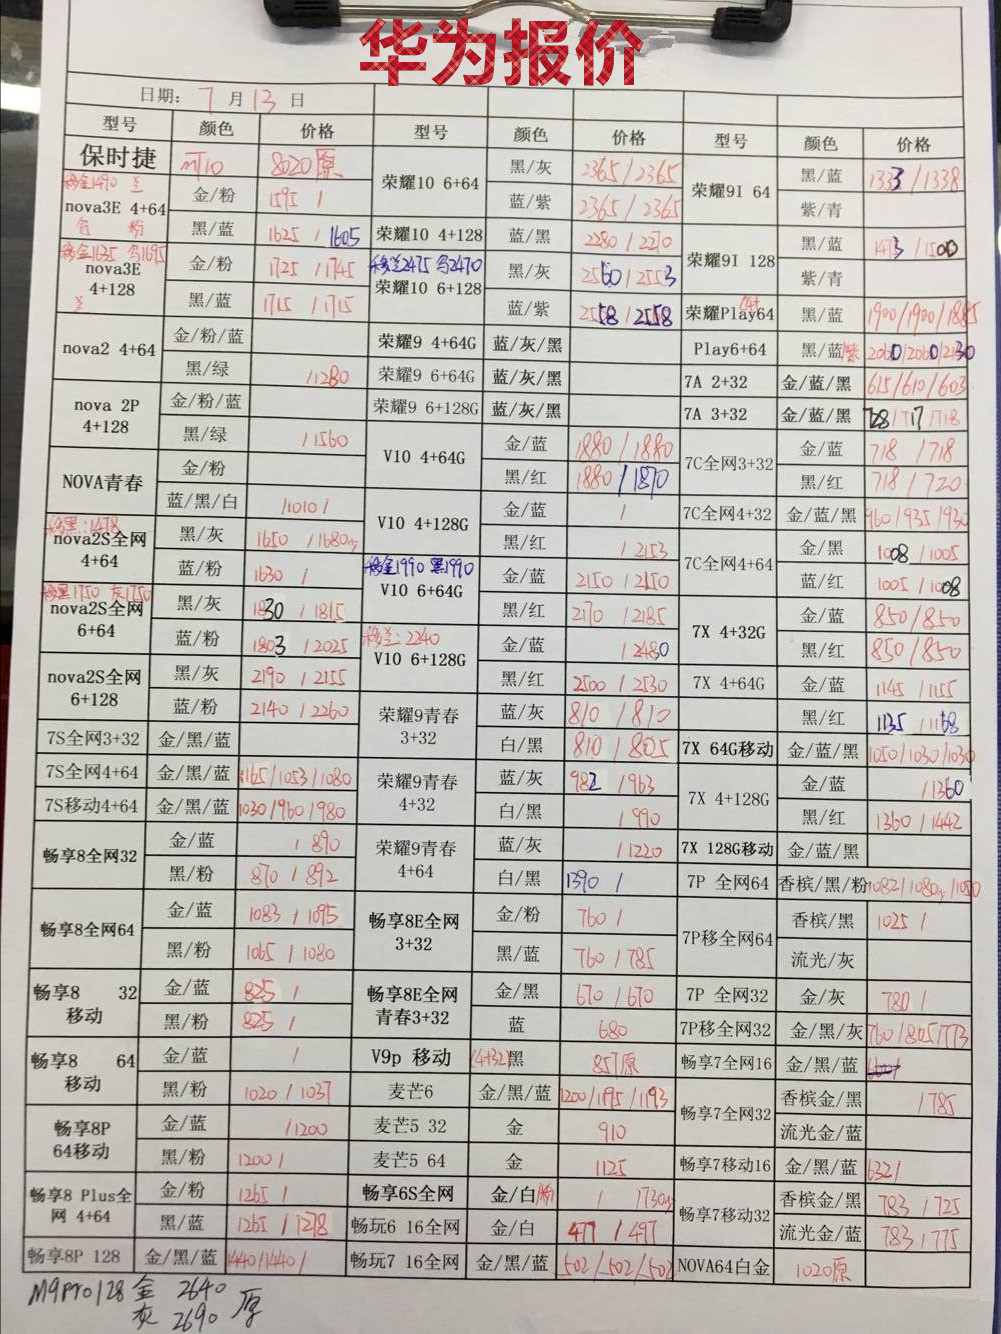 华为报价
日期: 7 月 13 日
型号 颜色 价格 型号 颜色 价格 型号 颜色 价格
保时捷 mT10 8020原 荣耀10 6+64 黑/灰 2365/2365 荣耀9I 64 黑/蓝 1333/1338
nova3E 4+64 金/粉 1595 / 蓝/紫 2365/2365 紫/青
黑/蓝 1625 / 1605 荣耀10 4+128 蓝/黑 2280/2270 荣耀9I 128 黑/蓝 1473/1500
nova3E 4+128 金/粉 1725 /1745 移兰2475 乌2470 荣耀10 6+128 黑/灰 2560/2553 紫/青
黑/蓝 1715 /1715 蓝/紫 2558/2558 荣耀Play64 黑/蓝 1900/1900/1885
nova2 4+64 金/粉/蓝 荣耀9 4+64G 蓝/灰/黑 Play6+64 黑/蓝紫 2060/2060/2130
黑/绿 /1280 荣耀9 6+64G 蓝/灰/黑 7A 2+32 金/蓝/黑 615/610/603
nova 2P 4+128 金/粉/蓝 荣耀9 6+128G 蓝/灰/黑 7A 3+32 金/蓝/黑 728/717/718
黑/绿 /1560 V10 4+64G 金/蓝 1880/1880 7C全网3+32 金/蓝 718 /718
NOVA青春 金/粉 黑/红 1880/1870 黑/红 718 /720
蓝/黑/白 /1010/ V10 4+128G 金/蓝 / 7C全网4+32 金/蓝/黑 960/935/930
nova2S全网 4+64 黑/灰 1650 /1680 黑/红 /2153 7C全网4+64 金/黑 1008/1005
蓝/粉 1630 / 移金1990 黑1990 V10 6+64G 金/蓝 2150/2150 蓝/红 1005/1008
移黑1750 灰1750 nova2S全网 6+64 黑/灰 1830 /1815 黑/红 2170 /2185 7X 4+32G 金/蓝 850/850
蓝/粉 1803 /2025 移兰:2240 V10 6+128G 金/蓝 /2480 黑/红 850/850
nova2S全网 6+128 黑/灰 2190 /2155 黑/红 2500 /2530 7X 4+64G 金/蓝 1145 /1155
蓝/粉 2140 /2260 荣耀9青春 3+32 蓝/灰 810 /810 黑/红 1135 /1168
7S全网3+32 金/黑/蓝 白/黑 810 /805 7X 64G移动 金/蓝/黑 1050/1030/1030
7S全网4+64 金/黑/蓝 1165/1053/1080 荣耀9青春 4+32 蓝/灰 982 /963 7X 4+128G 金/蓝 /1360
7S移动4+64 金/黑/蓝 1030/960/980 白/黑 /990 黑/红 1360 /1442
畅享8全网32 金/蓝 /890 荣耀9青春 4+64 蓝/灰 /1220 7X 128G移动 金/蓝/黑
黑/粉 870 /892 白/黑 1390 / 7P 全网64 香槟/黑/粉 1082/1080/1080
畅享8全网64 金/蓝 1083 /1095 畅享8E全网 3+32 金/粉 760 / 7P移全网64 香槟/黑 1025 /
黑/粉 1065 /1080 黑/蓝 760 /785 流光/灰
畅享8 32 移动 金/蓝 825 / 畅享8E全网 青春3+32 金/黑 670 /670 7P 全网32 金/灰 780 /
黑/粉 825 / 蓝 680 7P移全网32 金/黑/灰 760/805/773
畅享8 64 移动 金/蓝 / V9p 移动 (4+32)黑 857原 畅享7全网16 金/黑/蓝
黑/粉 1020 /1037 麦芒6 金/黑/蓝 1200/1195/1193 畅享7全网32 香槟金/黑 /785
畅享8P 64移动 金/蓝 /1200 麦芒5 32 金 910 流光金/蓝
黑/粉 1200/ 麦芒5 64 金 1125 畅享7移动16 金/黑/蓝 632/
畅享8 Plus全网 4+64 金/粉 1265 / 畅享6S全网 金/白粉 / 1730 畅享7移动32 香槟金/黑 783 /725
黑/蓝 1265 /1278 畅玩6 16全网 金/白 477 /497 流光金/蓝 783 /775
畅享8P 128 金/黑/蓝 1440/1440/ 畅玩7 16全网 金/黑/蓝 502/502/502 NOVA64白金 1020原
M9Pro128 金 2640
灰 2690 原